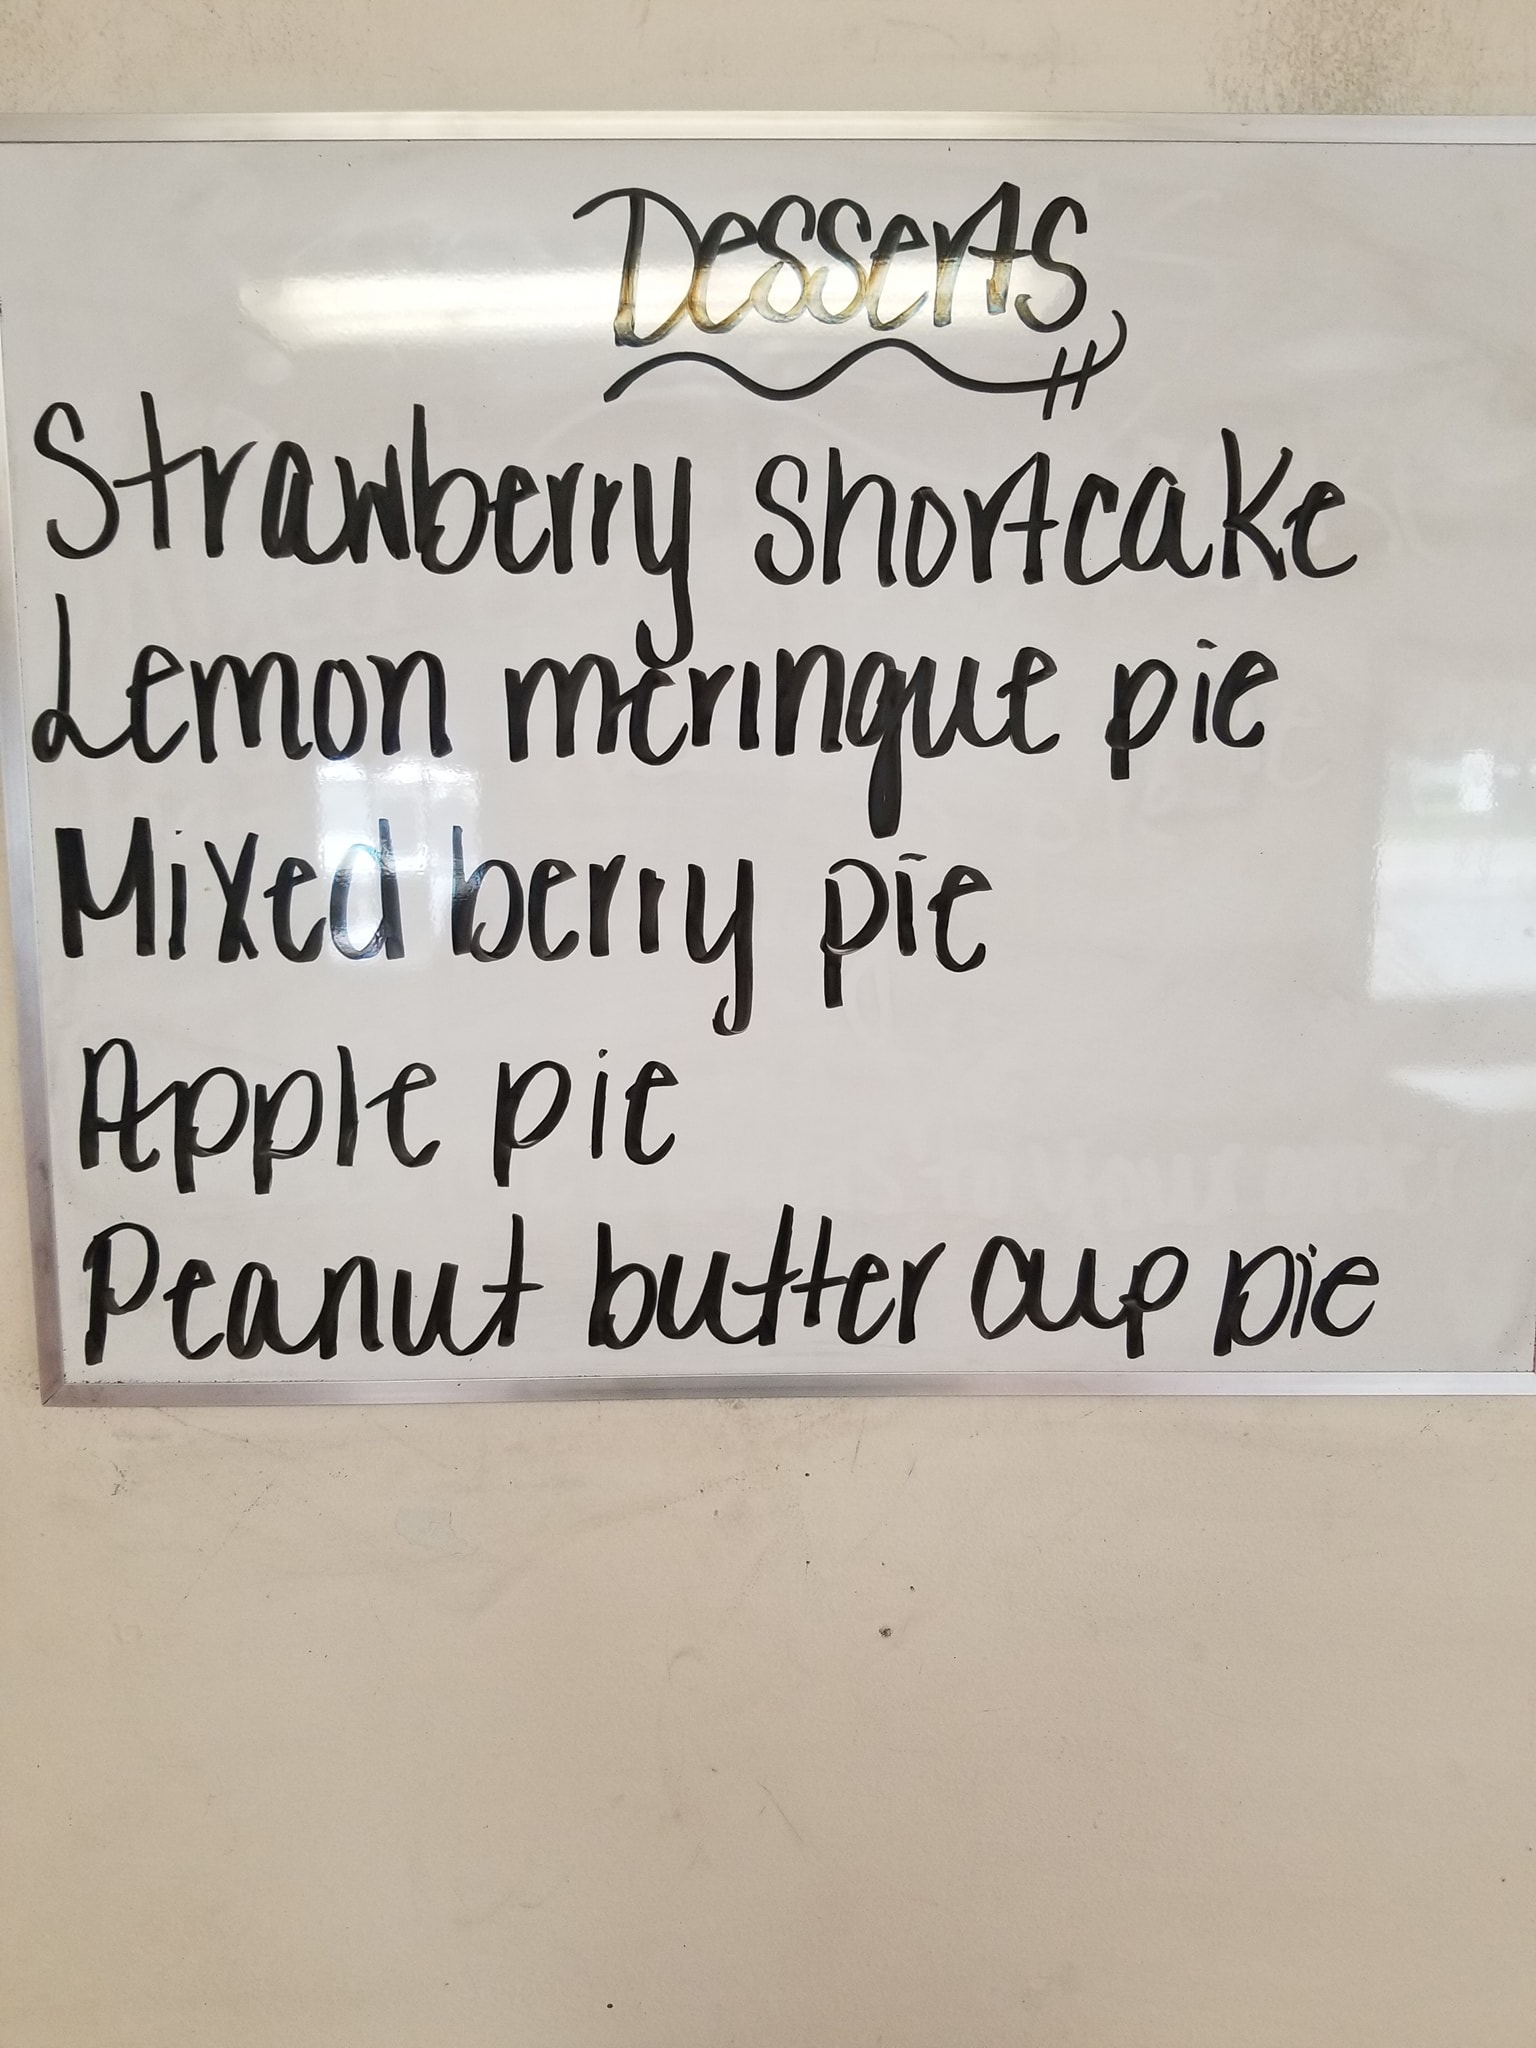 Desserts
Strawberry shortcake
Lemon meringue pie
Mixed berry pie
Apple pie
Peanut butter cup pie